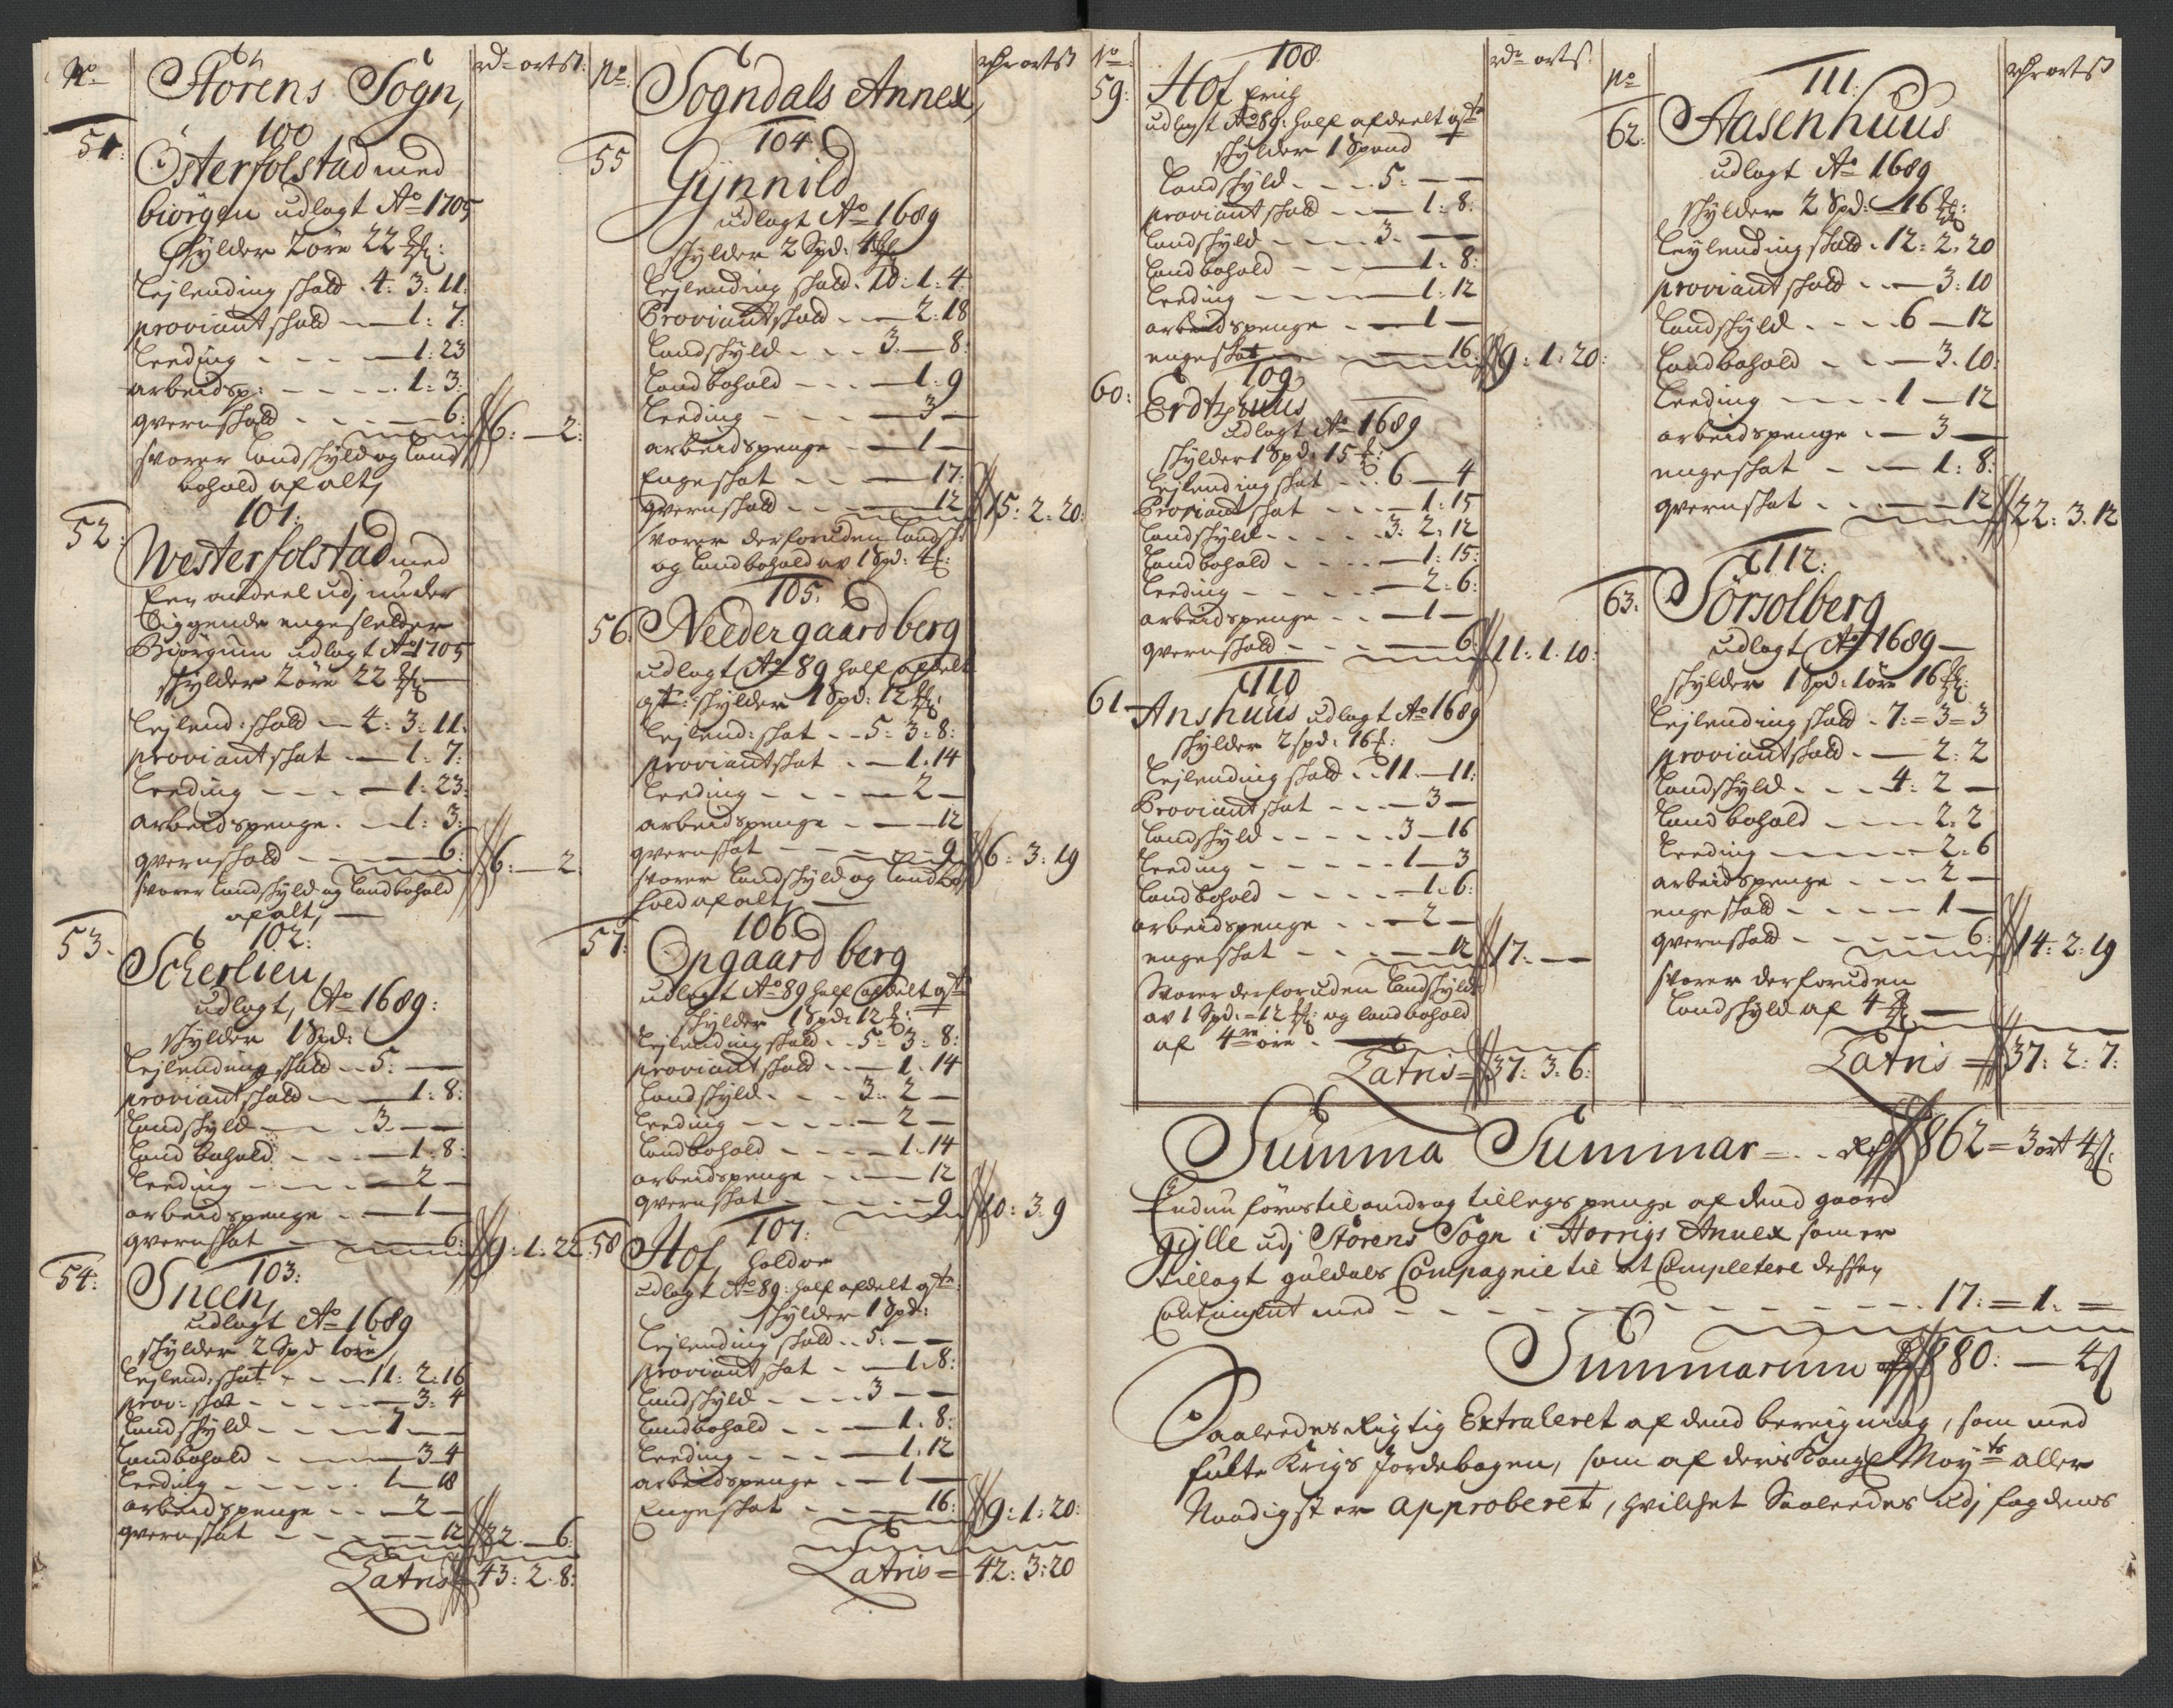 No
Störens Sogn,
rdr ort ß:
51:
100
Österfolstad med
biörgen udlagt Ao 1705
skylder 2 öre 22 mk:
Lejlending skatt . 4: 3: 11:
proviantskatt — 1: 7:
Leeding - - - — 1: 23
arbeidsp: - - - - 1: 3:
qvernskatt - - - — 6: 6: — 2:
svarer landskyld og land
bohold af alt,
52:
101:
Westerfolstad med
Een andeel udj under
liggende engesletter
Biörgum udlagt Ao 1705
skylder 2 öre 22 mk —
Lejlend: skatt — 4: 3: 11:
proviantskat - — 1: 7:
Leeding - - - — 1: 23:
arbeidspenge . — 1: 3:
qvernskatt - - - — 6: 6: — 2
svarer landskyld og landbohold
af alt, —
53.
102:
Scherlien,
udlagt, Ao 1689:
skylder 1 Spd:
Lejlending skatt - - 5: —
proviantskatt - — 1: 8:
Landskyld — - . 3: — —
Land bohold - - — 1: 8:
Leeding - - - — 2 —
arbeidspenge - — 1 —
qvernskat - — 6: 9: 1: 22
54:
103:
Sneen,
udlagt Ao 1689
skylder 2 Spd 1 öre,
Lejlend: skat - - - 11: 2: 16
prov: skat - - - — 3: 4
Landskyld - - - - 7 — —
Landbohold - - — 3 4
Leeding - - - - 1 — 18
arbeidspenge - - — 2 —
qvernskat - - - — 12 22 — 6:
Latris 43: 2: 8:
No
Sogndals Annex,
rdr ort ß
55
104
Gÿnnild
udlagt Ao 1689
skylder 2 Spd: 4 mk
Lejlending skatt . 10: 1: 4:
Proviantskatt - — 2: 18
Landskyld - - - 3: — 8:
Landbohold - - - — 1: 9
Leeding - - - — 3 —
arbeidspenge - — 1 —
Engeskat - - — 17:
qvernskatt - - - — 12 15: 2: 20:
svarer derforuden Landsk:
og Landbohold av 1 Spd: 4 mk:
105.
56. Needergaardberg
udlagt Ao 89 half afdelt
gst: skylder 1 Spd: 12 mk:
Lejlend: skat - - 5: 3: 8:
proviantskat - — 1: 14
Leeding - - - — 2 —
arbeidspenge - — — 12
qvernskat - - - — 9 6: 3: 19
svarer Landskyld og Landbo
hold af alt, —
57:
106
Opgaardberg
udlagt Ao 89 half afdelt gst
skylder 1 Spd: 12 mk:
Lejlending skatt - . 5: 3: 8:
proviantskatt - — 1: 14
Landskyld - - - 3: 2 —
Leeding - - - - — 2 —
Landbohold - - - — 1: 14
arbeidspenge - - — 12
qvernskat - - - — 9 10: 3: 9
58
107:
Hof, Haldor
udlagt Ao 89: half afdelt gst:
skylder 1 Spd:
Lejlending skatt - . 5: — —
proviantskat - — 1: 8:
Landskyld - - - - 3 — —
Landbohold - - — 1: 8:
Leeding - - - — 1: 12
arbeidspenge - — 1 —
Engeskat - - - — 16: 9: 1: 20:
Latris = 42: 3: 20
No
59:
108
rdr ort ß
Hof Erich
udlagt Ao 89: half afdeelt gst
skylder 1 Spand
Landskyld - - - . 5: — —
proviantskatt - - — 1: 8:
Landskyld - - - - 3: —
Landbohold - - — 1: 8:
Leeding - - - — 1: 12
arbeidspenge - — 1 —
engeskat - - - — 16: 9: 1: 20:
60:
109
udlagt Ao 1689
skylder 1 Spd: 15 mk:
Lejlending skat - - . 6 — 4
Proviant skat - - - — 1: 15
Landskyld - - - - 3: 2: 12
Landbohold - - - — 1: 15:
Leeding - - - - — 2: 6:
arbeidspenge - - — 1 —
qvernskatt - - - — 6: 11: 1: 10:
110
61 — Anshuus udlagt Ao 1689
skylder 2 spd: 16 mk:
Lejlending skatt - . 11 — 11:
Proviant skat - - — 3 —
Landskyld - - - - - 3 — 16
Leeding - - - - - 1 — 3
Landbohold - - - - — 1: 6:
arbeidspenge - - — 2 —
engeskat - - - — 12 17: — —
Svarer derforuden Landskyld
av 1 Spd: = 12 mk: og Landbohold
af 4re öre - —
Latris = 37: 3: 6:
No
rdr ort ß
62:
111:
Aasenhuus
udlagt Ao 1689
skylder 2 Spd: — 16 mk:
Lejlending skatt . 12: 2: 20
proviantskatt - - — 3: 10
Landskyld - - - . 6 — 12
Landbohold - - — 3: 10:
Leeding - - - - 1 — 12
arbeidspenge . — 3 —
engeskat - - — 1: 8:
qvernskat - - - — 12 22: 3: 12
112:
63: Sörsolberg
udlagt Ao 1689 —
skylder 1 Spd: 1 öre 16 mk:
Lejlending skatt . 7: = 3 = 3
proviantskatt - — 2: 2
Landskyld - - - 4: 2 —
Landbohold - - — 2: 2
Leeding - - - — 2: 6
arbeidspenge - - — 2 —
engeskatt - - - - 1 —
qvernskatt - - - — 6: 14: 2: 19
svarer derforuden
Landskyld af 4 mk —
Latris = 37: 2: 7:
Summa Summar = - . Rdr 862 = 3 ort 4 ß:
Endnu föris til andrag tillegs penge af dend gaard
Gÿlle udj Störens Sogn i Horrigs Annex som er
tillagt guldals Compagnie til at Completere dessen
Contingent med - - - - - - - - - - - . 17: = 1: =
Summarum 880: — 4 ß
Saaledes Rigtig Extraheret af dend bereigning, som med
fulte Krigs Jordebogen, som af deris Kongl Mayts aller
Naadigst er approberet, hvilchet Saaledes udj fogdens